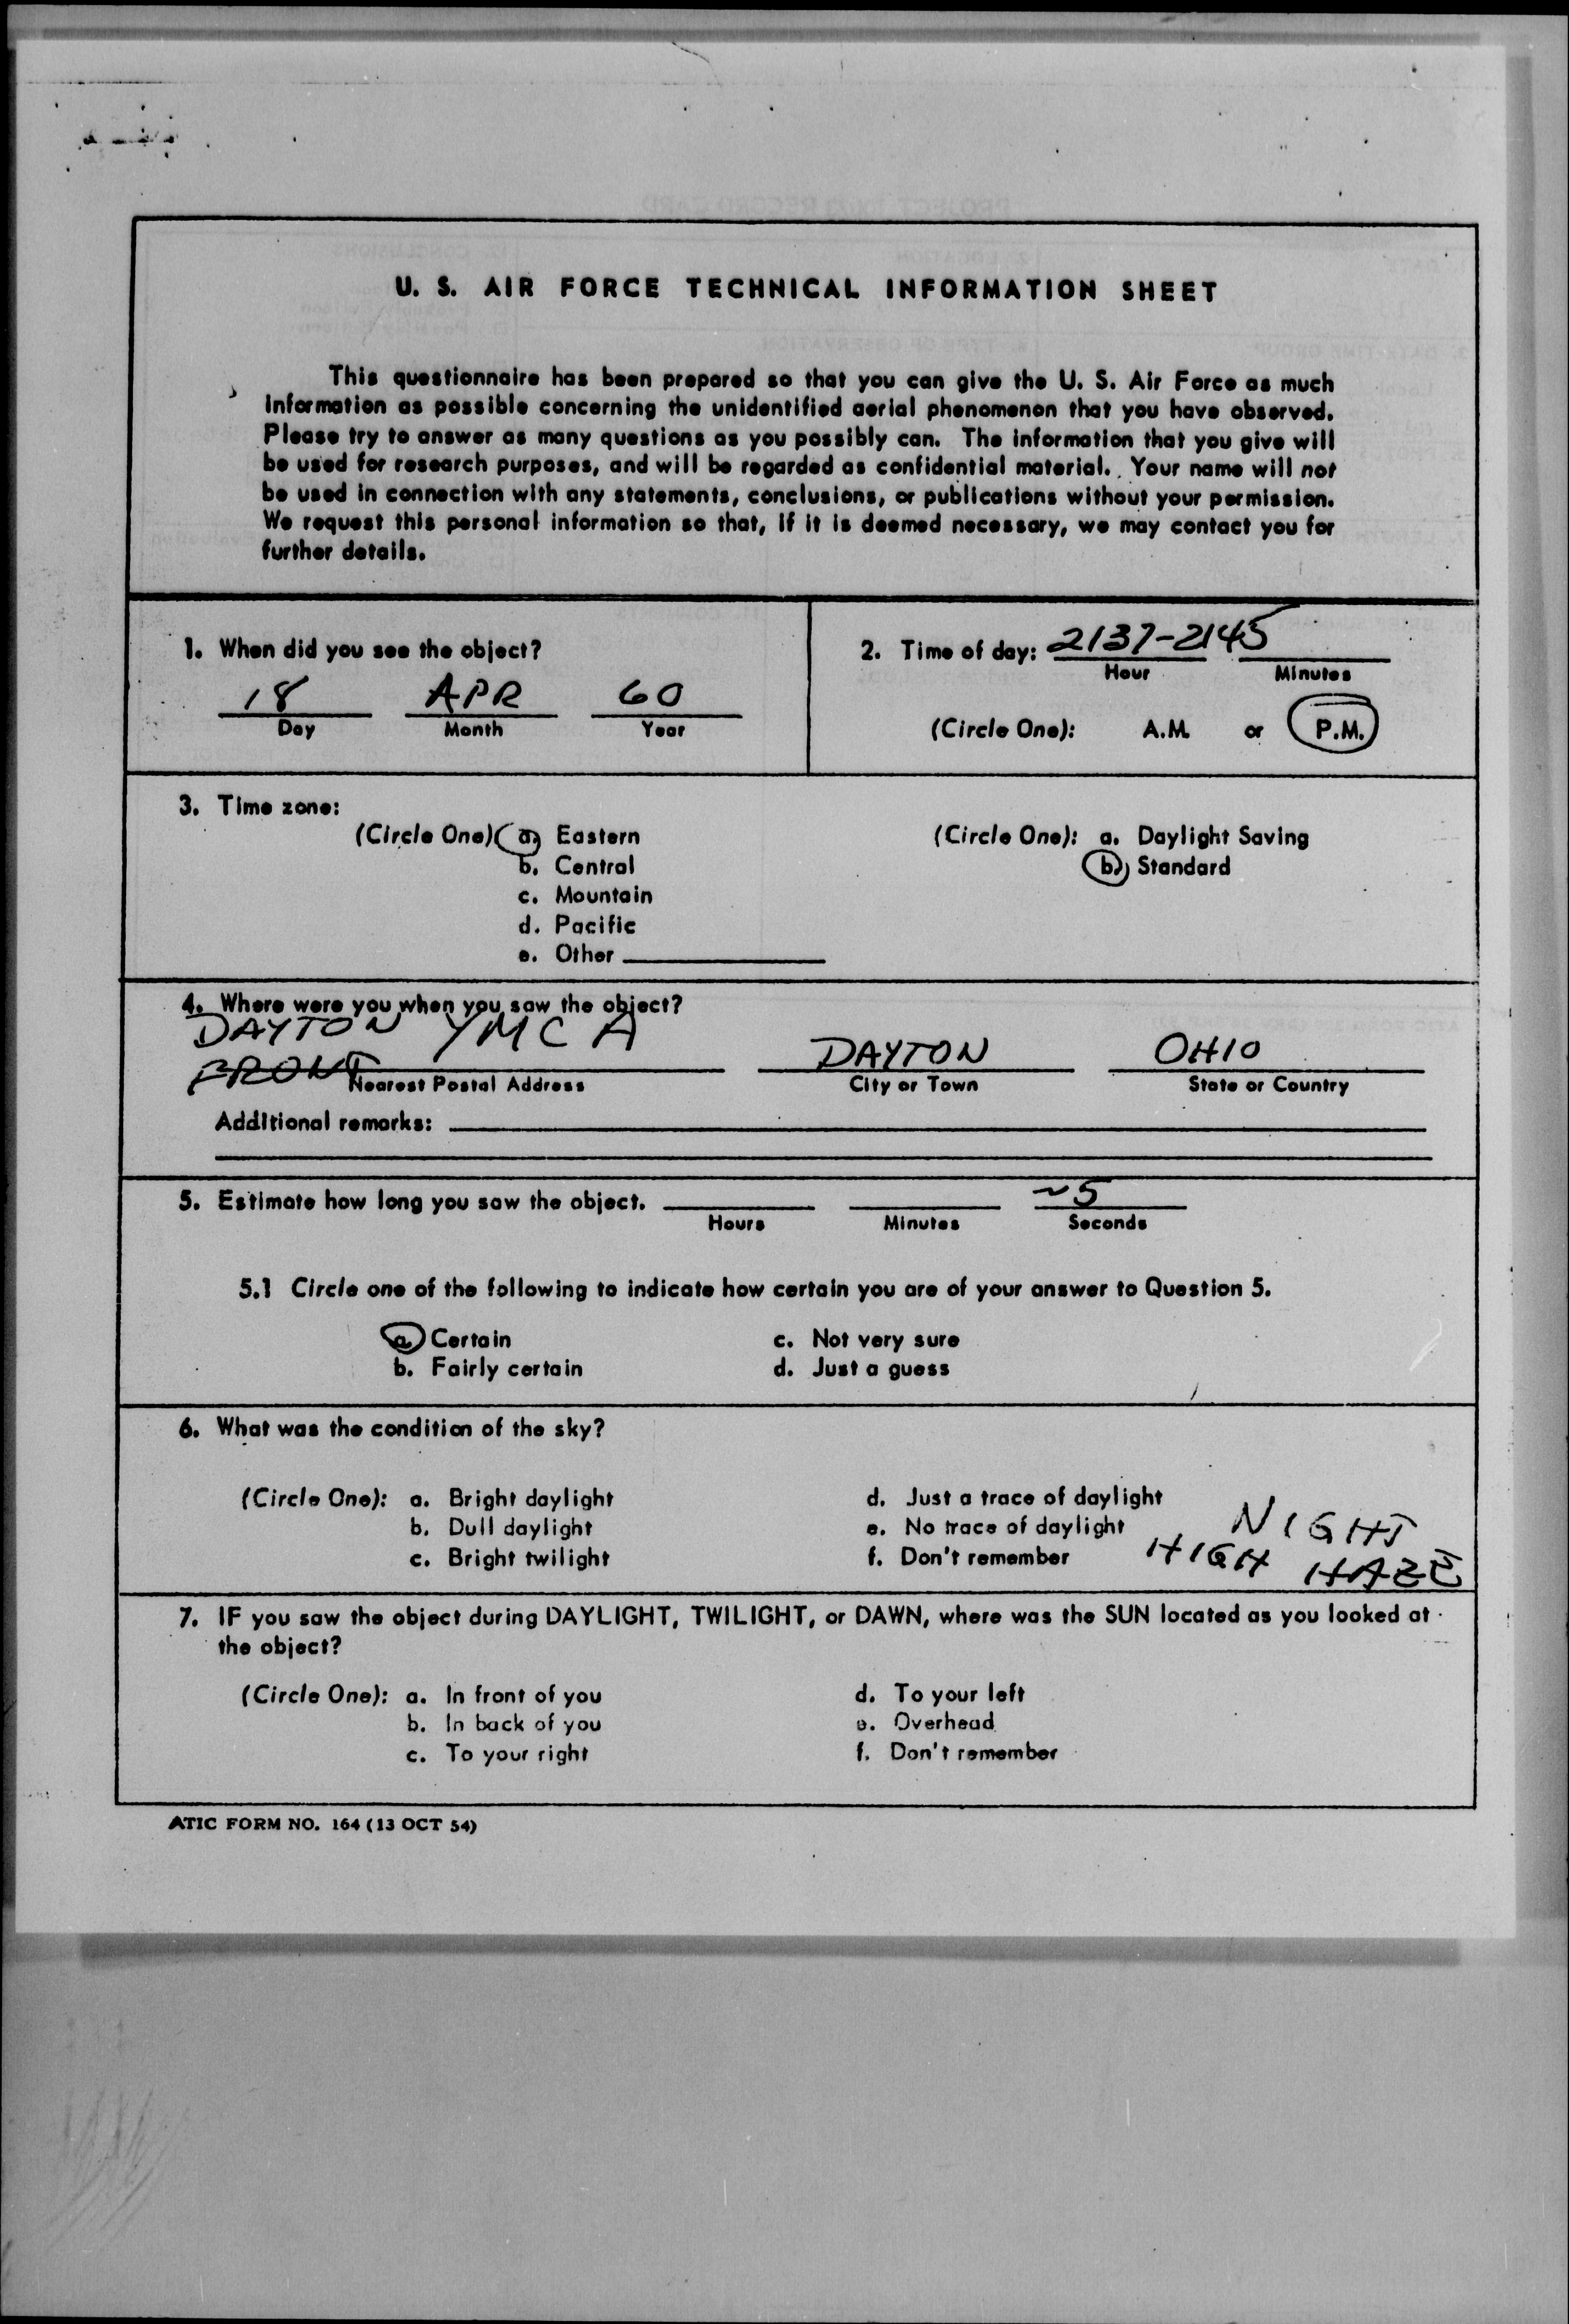 U. S. AIR FORCE TECHNICAL INFORMATION SHEET
This questionnaire has been prepared so that you can give the U. S. Air Force as much
information as possible concerning the unidentified aerial phenomenon that you have observed.
Please try to answer as many questions as you possibly can. The information that you give will
be used for research purposes, and will be regarded as confidential material. Your name will not
be used in connection with any statements, conclusions, or publications without your permission.
We request this personal information so that, if it is deemed necessary, we may contact you for
further details.
1. When did you see the object?
18 APR 60
Day Month Year
2. Time of day: 2137-2145
Hour Minutes
(Circle One): A.M. or P.M.
3. Time zone:
(Circle One) a. Eastern
b. Central
c. Mountain
d. Pacific
e. Other
(Circle One): a. Daylight Saving
b. Standard
4. Where were you when you saw the object?
DAYTON YMCA
FRONT DAYTON OHIO
Nearest Postal Address City or Town State or Country
Additional remarks:
5. Estimate how long you saw the object. ~5
Hours Minutes Seconds
5.1 Circle one of the following to indicate how certain you are of your answer to Question 5.
a. Certain c. Not very sure
b. Fairly certain d. Just a guess
6. What was the condition of the sky?
(Circle One): a. Bright daylight d. Just a trace of daylight
b. Dull daylight e. No trace of daylight NIGHT
c. Bright twilight f. Don't remember HIGH HAZE
7. IF you saw the object during DAYLIGHT, TWILIGHT, or DAWN, where was the SUN located as you looked at
the object?
(Circle One): a. In front of you d. To your left
b. In back of you e. Overhead
c. To your right f. Don't remember
ATIC FORM NO. 164 (13 OCT 54)